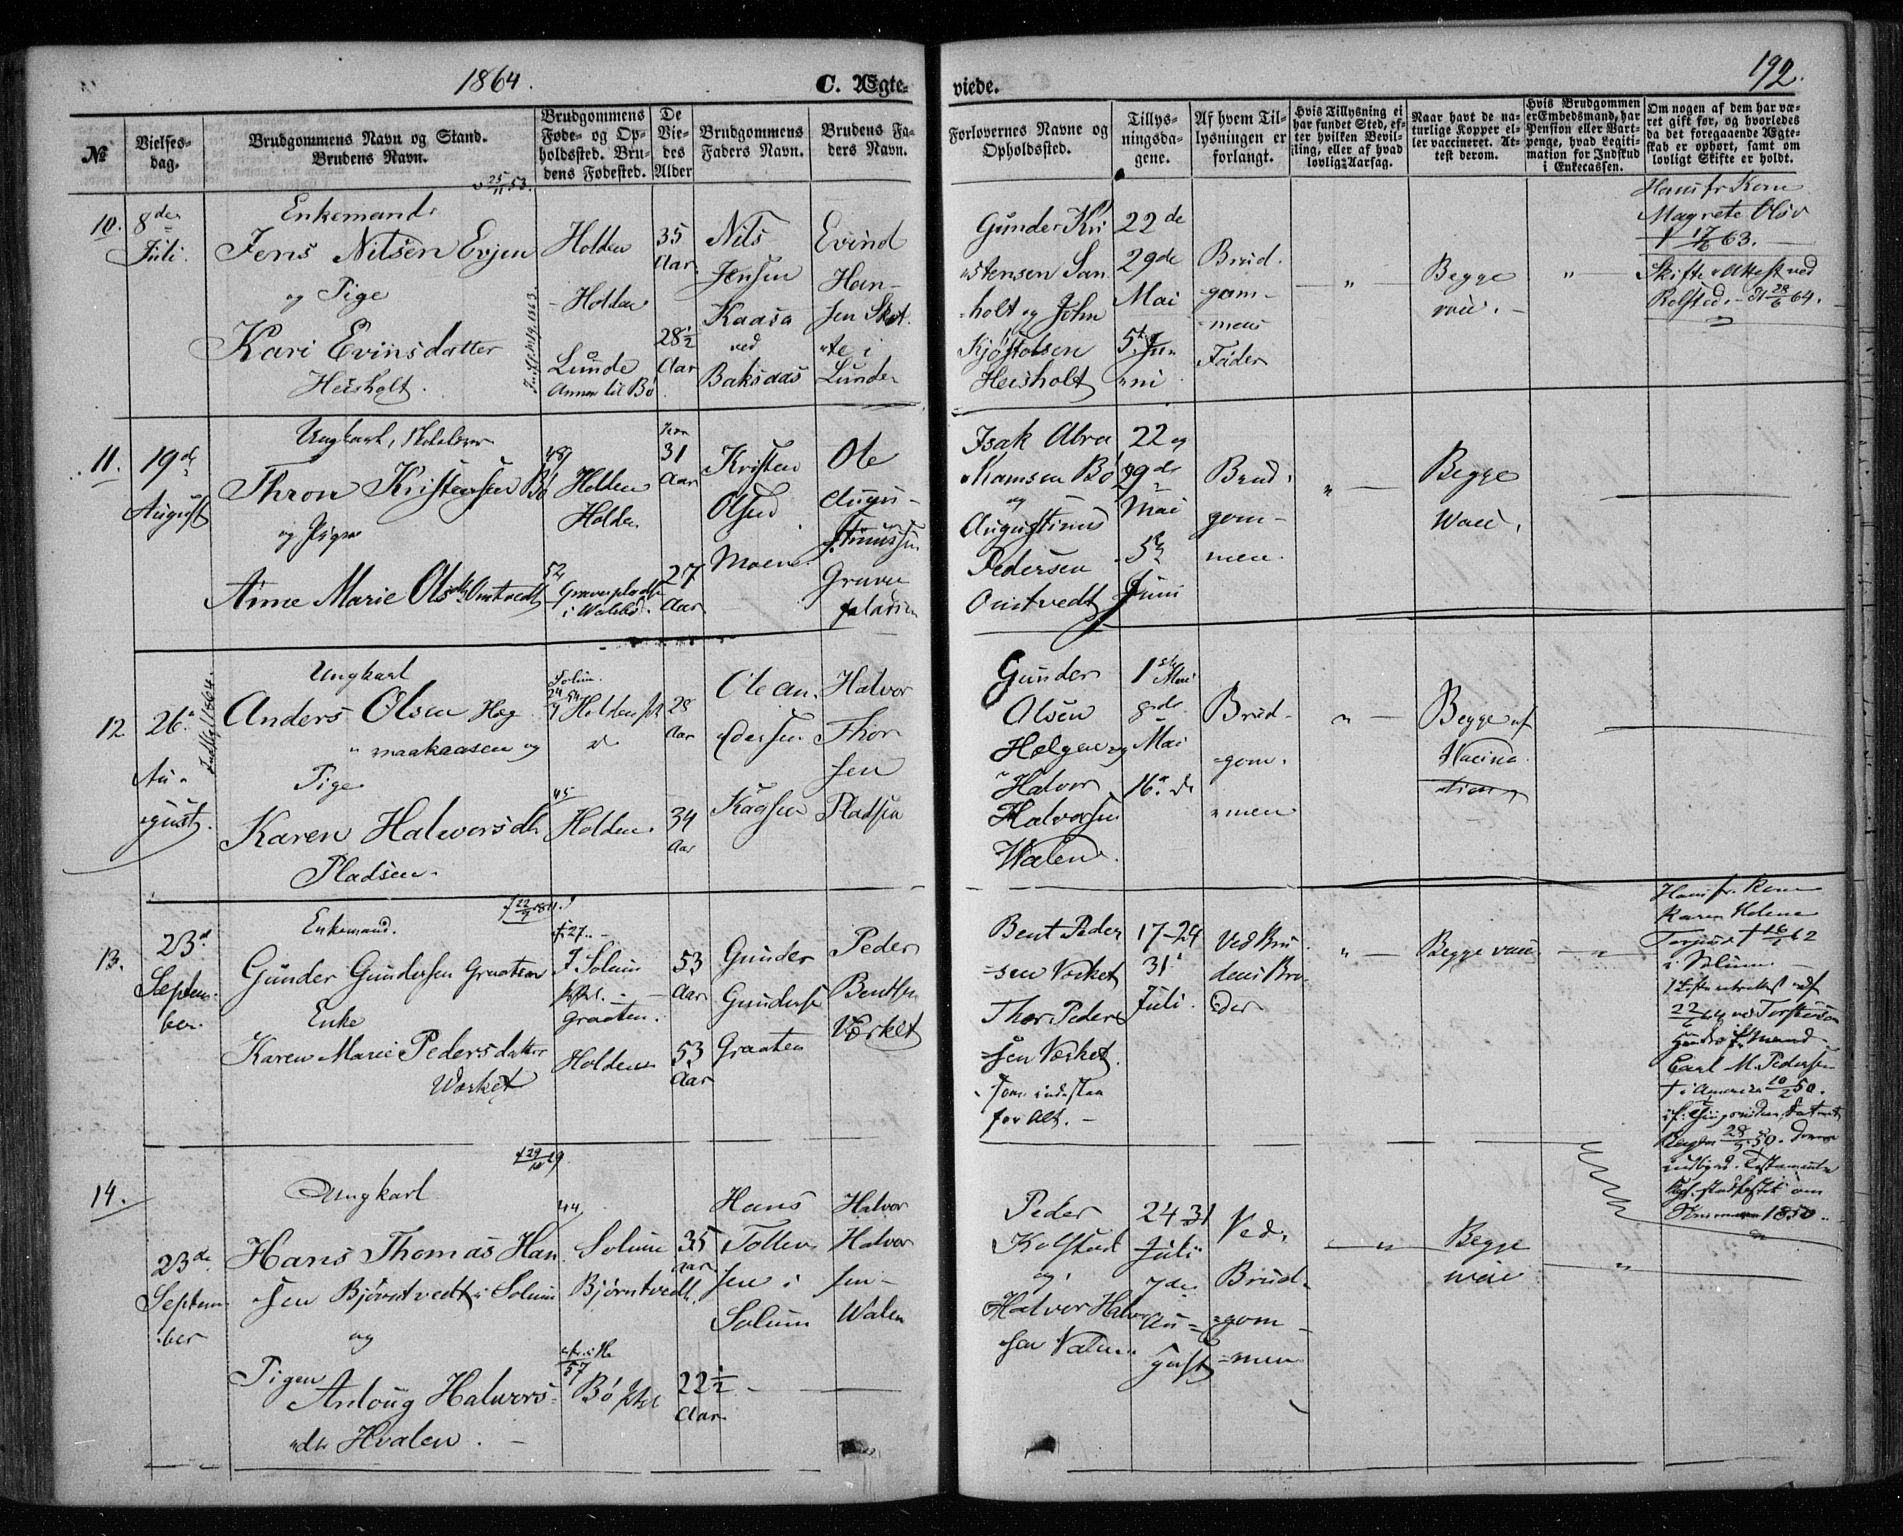 1864.
C. Ægte-
viede.
192.
№
Vielses-
dag.
Brudgommens Navn og Stand.
Brudens Navn.
Brudgommens
Føde- og Op-
holdssted. Bru-
dens Fødested.
De
Vie-
des
Alder
Brudgommens
Faders Navn.
Brudens Fa-
ders Navn.
Forlovernes Navne og
Opholdssted.
Tillys-
ningsda-
gene.
Af hvem Til-
lysningen er
forlangt.
Hvis Tillysning ei
har fundet Sted, ef-
ter hvilken Bevil-
ling, eller af hvad
lovlig Aarsag.
Naar havt de na-
turlige Kopper el-
ler vaccineret. At-
test derom.
Hvis Brudgommen
er Embedsmand, har
Pension eller Vart-
penge, hvad Legiti-
mation for Indskud
i Enkecassen.
Om nogen af dem har væ-
ret gift før, og hvorledes
da det foregaaende Ægte-
skab er ophørt, samt om
lovligt Skifte er holdt.
10.
8de
Juli.
25/11 53.
Enkemand
Jens Nilsen Evjen
og Pige
Kari Evinsdatter
Heisholt.
Holden
- Holden
Lunde
Annex til Bø
35
Aar
28½
Aar
Nils
Jensen
Kaasa
ved
Baksaas
Evind
Han-
sen Skot
te i
Lunde
Gunder Kri
stensen San
holt og John
Kjøstolsen
Heisholt
22de
29de
Mai
5te Ju
ni
Brud
gom-
mens
Fader
"
Begge
vac. -
"
Hans fr Kone
Magrete Olsd
† 17/6 63. -
Skifte Attest ved
Rolfsted - 28/6 64.
11.
19de
August
Ungkarl, Skolelærer
Thron Kristensen Bø
og Pige
Anne Marie Olsdtr Omtvedt
49
Holden
Holden
52
Graverpladsen
i Holden.
31
Aar
27
Aar
Kristen
Olsen
Moen
Ole
Augu-
stinussen
Graver
pladsen
Isak Abra
hamsen Bø
og
Augustinus
Pedersen
Omtvedt
22 og
29de
Mai
5te
Juni
Brud
gom-
men.
"
Begge
Vacc.
12
26de
Au-
gust.
Ungkarl
Anders Olsen Hæg
maakaasen og
Pige
Karen Halvorsdtr
Pladsen.
Solum.
24/7 54
Holden
45
Holden.
28
Aar
34
Aar
Ole An
dersen
Kaasen
Halvor
Thor
sen
Pladsen
Gunder
Olsen
Helgen og
Halvor
Halvorsen
Walen.
1ste Mai
8de
Mai
16de
Brud
gom.
men
"
Begge af
Vaccina
tion
13.
23de
Septem-
ber.
22/9
Enkemand.
Gunder Gundersen Graaten
Enke
Karen Marie Pedersdatter
Værket
27.
Solum
Graaten.
Holden
53
Aar
53
Aar
Gunder
Gunders
Graaten
Peder
Bentsen
Værket
Bent Peder
sen Værket
Thor Peder
sen Værket.
som indestaa
for Alt. -
17-24
31'
Juli.
Ved Bru
dens Bro
der
"
Begge vacc.
"
Hans fr. Kone
Karen Helene
i Solum. -
22/6 64 ved Torstensen
hendes f. Mand
Carl M. Pedersen
† i Amerika 10/2 50.
Testamente
stadfæstet
1850.
14.
29/10 19
Ungkarl
23de
Septem
ber
Hans Thomas Han
sen Bjørntvedt i Solum
og
Pigen
Anloug Halvors
dtr Hvalen. -
44
Solum
Bjørntvedt
57
Bø
35
Aar
22½
Aar
Hans
Tollev
sen i
Solum
Halvor
Halvor
sen
Walen
Peder
Kolstad
og
Halvor Halvor
sen Valen
24 31
Juli
7de
Au-
gust
Ved
Brud
gom-
men
"
Begge
vacc
"